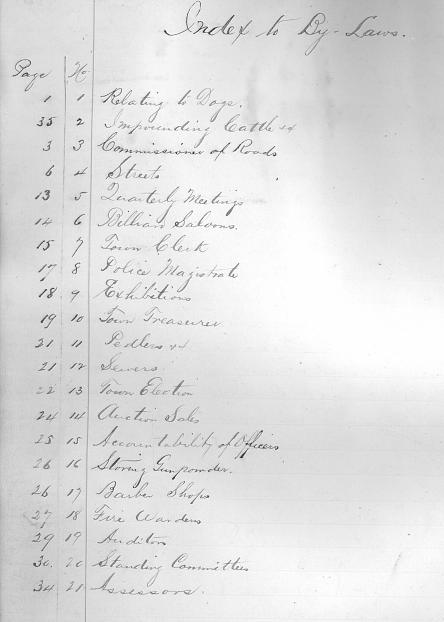 Index to By-Laws.
Page No
1 1 Relating to Dogs.
35 2 Impounding Cattle &c
3 3 Commissioner of Roads
6 4 Streets
13 5 Quarterly Meetings
14 6 Billiard Saloons.
15 7 Town Clerk
17 8 Police Magistrate
18 9 Exhibitions
19 10 Town Treasurer
21 11 Pedlers &c
21 12 Sewers
22 13 Town Election
24 14 Auction Sales
25 15 Accountability of Officers
26 16 Storing Gunpowder.
26 17 Barber Shops
27 18 Fire Wardens
29 19 Auditors
30. 20 Standing Committees
34 21 Assessors.